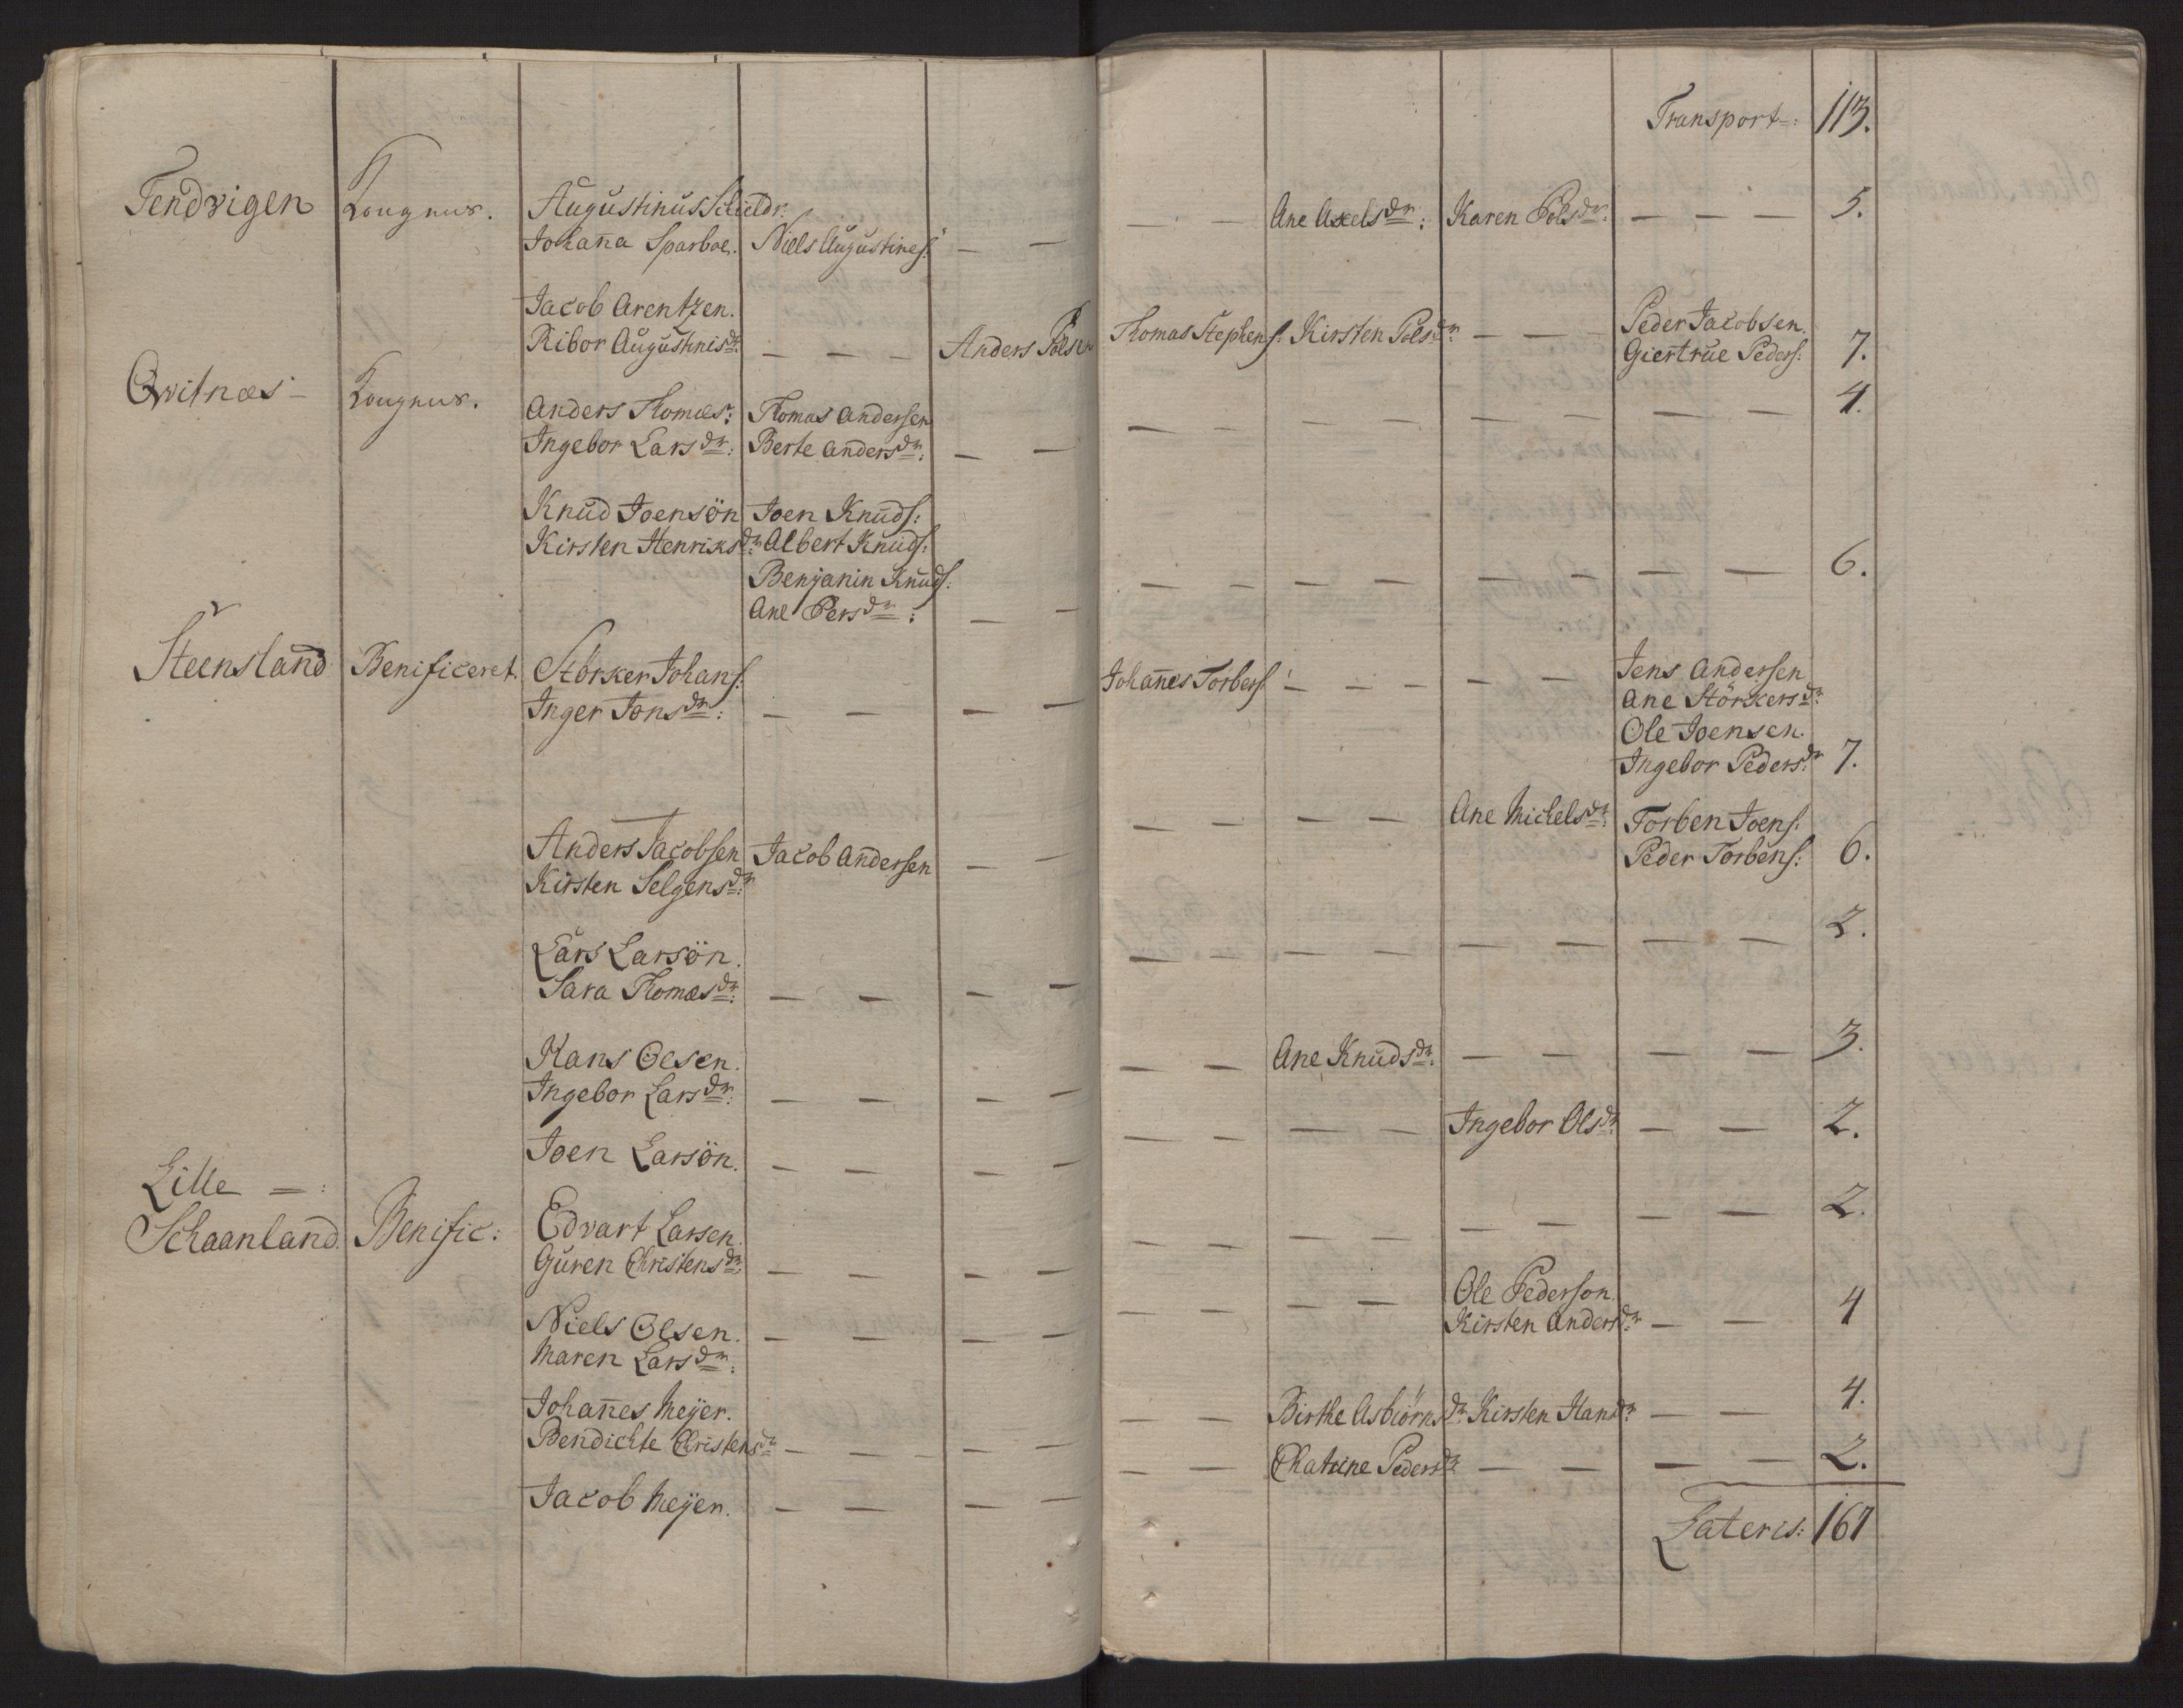 Transport: 113.
Fendvigen Kongnus. Augustinus Schieldr: — — Ane Axelsdr: Karen Polsdr. — — — 5.
Johaña Sparboe. Niels Augustines: — —
Jacob Arentzen. Peder Jacobsen.
Ribor Augustinisdr. — — — Anders Polsen Thomas Stephens: Kirsten Polsdr: — — Giertrue Peders: 7.
Qvitnæs – Kongnus. Anders Thomæs: Thomas Andersen — — — — — — — — 4.
Ingebor Larsdr: Berte Andersdr: — —
Knud Joensön Joen Knuds:
Kirsten Henriksdr: Albert Knuds:
Benjanin Knuds: — — — — — — — — 6.
Ane Persdr: — —
Steensland Benificeret. Störker Johans: Johañes Torbers: — — — — — Jens Andersen
Inger Jonsdr: — — — — Ane Störkersdr:
Ole Joensen.
Ingebor Pedersdr: 7.
— — — — Ane Michelsdr: Torben Joens:
Anders Jacobsen Jacob Andersen — — Peder Torbens: 6.
Kirsten Selgensdr:
Lars Larsön. — — — — — — — — 2.
Sara Thomæsdr: — — — —
Hans Olsen. — — Ane Knudsdr: — — — — 3.
Ingebor Larsdr: — — — —
Joen Larsön. — — — — — — — — Ingebor Olsdr: — — 2.
Lille — :
Schaanland. Benific: Edvart Larsen. — — — — — — — — 2.
Guren Christensdr: — — — —
Niels Olsen. — — — — — — — — Ole Pederson. 4
Maren Larsdr: Kirsten Andersdr: — —
Johañes Meÿer. — — Birthe Asbiörnsdr: Kirsten Hansdr: — — 4.
Bendichte Christensdr: — — — — —
Jacob Meÿer. — — — — — — Chatrine Pedersdr: — — — — 2.
Lateris: 167